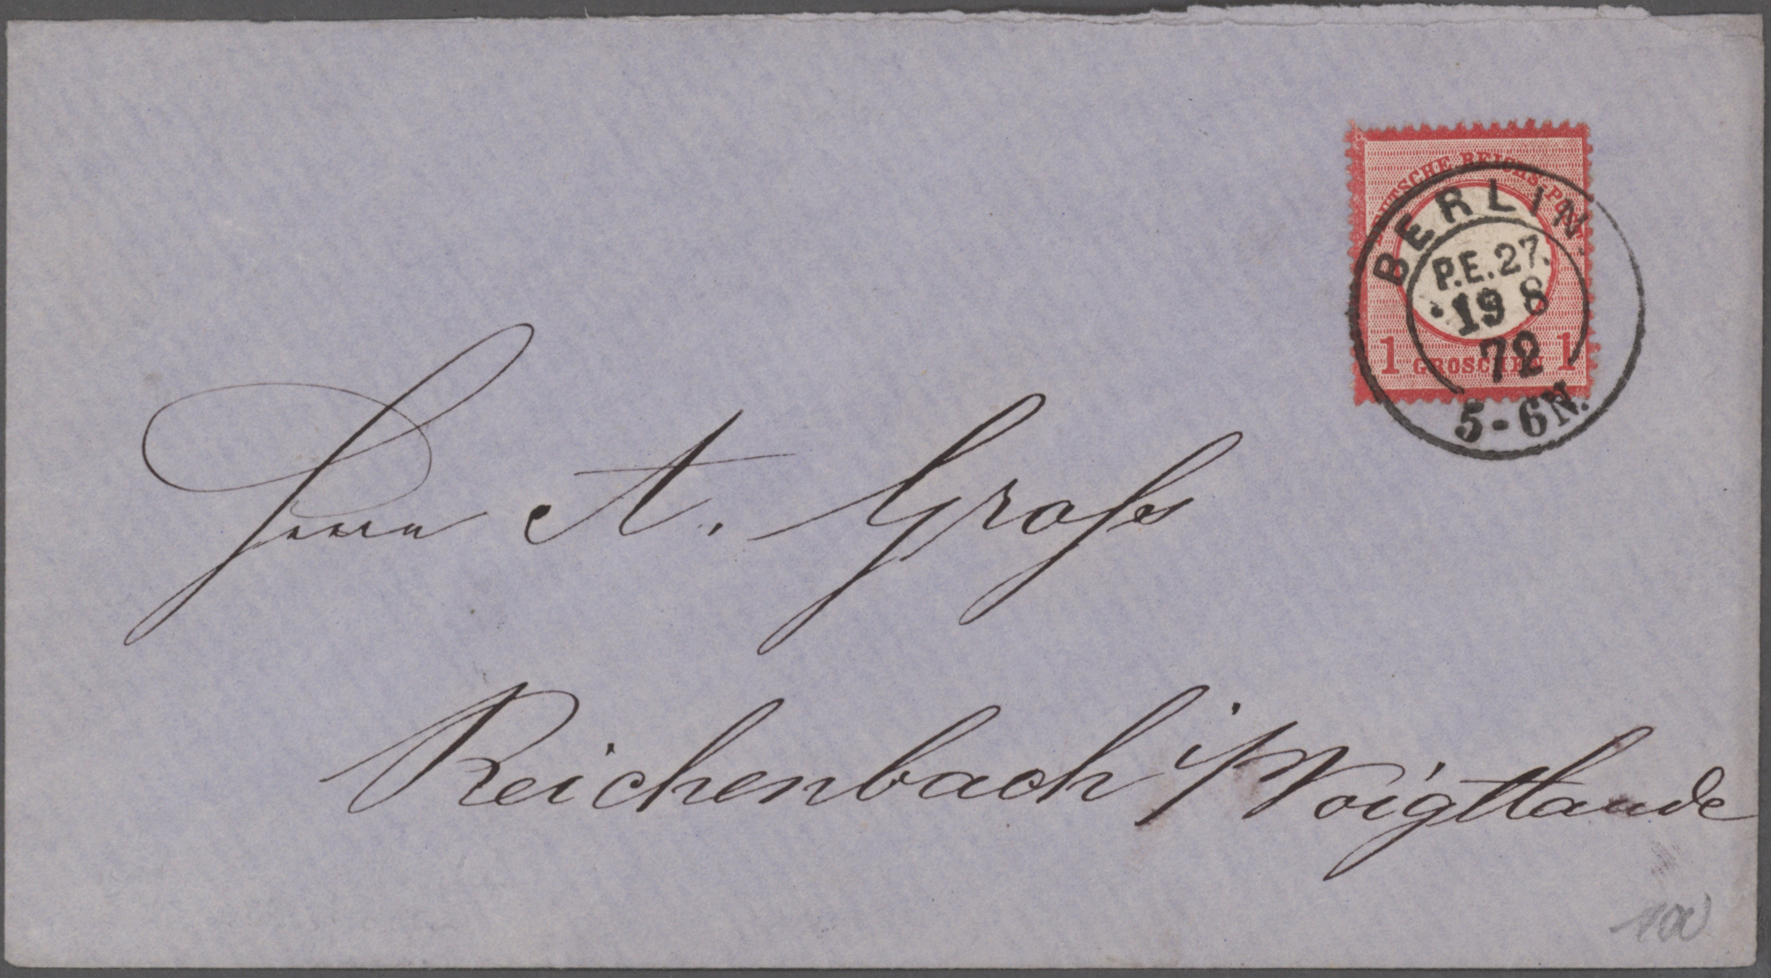 DEUTSCHE REICHS-POST
BERLIN
P.E.27.
19 8
72
5-6N.
1 GROSCHEN 1
Herrn A. Grohs
Reichenbach i/Voigtlande
100